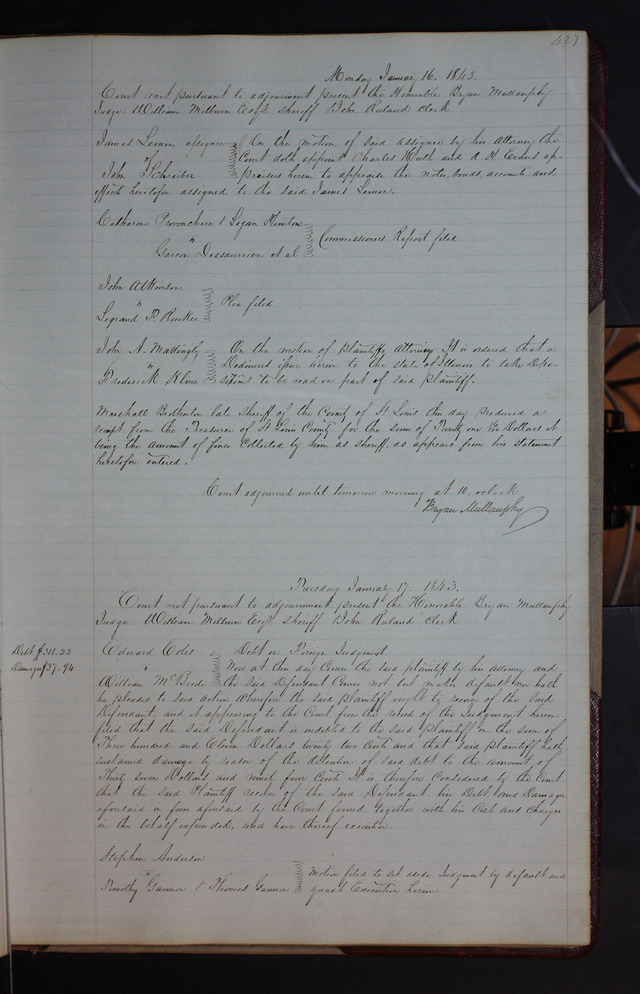 427
Monday January 16. 1843.
Court met pursuant to adjournment present the Honorable Bryan Mullanphy
Judge. William Milburn Esqr. sheriff & John Ruland Clerk
James Lemen assignee of On the motion of said assignee by his attorney the
Court doth appoint Charles Keith and A. H. Evans ap-
John Schreiber praisers herein to appraise the notes, bonds, accounts and
effects heretofore assigned to the said James Lemen.
Catharine Provenchere & Logan Hunton
Commissioners Report filed.
Garcon Dessaurien et al
John Atkinson
Plea filed
Legrand P. Rucker
John A. Mattingly On the motion of plaintiffs attorney It is ordered that a
Dedimus issue herein to the state of Illinois to take depo-
Frederic M. Kline sitions to be read on part of said plaintiff.
Marshall Brotherton late Sheriff of the County of St Louis this day produced a
receipt from the Treasurer of St Louis County for the sum of Twenty one Dollars it
being the amount of fines collected by him as sheriff. as appears from his statement
heretofore entered.
Court adjourned until tomorrow morning at 10, oclock
Bryan Mullanphy
Tuesday January 17. 1843.
Court met pursuant to adjournment present the Honorable Bryan Mullanphy
Judge. William Milburn Esqr. sheriff & John Ruland Clerk
Debt $311.22 Edward Coles Debt on Foreign Judgment
Damages $37.94 " Now at this day comes the said plaintiff by his attorney and
William McBride the said Defendant comes not but makes default nor hath
he pleaded to said action. Wherefore the said plaintiff ought to recover of the said
Defendant, and it appearing to the Court from the record of the Judgment herein
filed that the said Defendant is indebted to the said Plaintiff in the sum of
Three hundred and Eleven Dollars twenty two Cents and that said plaintiff hath
sustained damage by reason of the detention of said debt to the amount of
Thirty seven Dollars and ninety four Cents It is therefore Considered by the Court
that the said Plaintiff recover of the said Defendant his Debt and Damages
aforesaid in form aforesaid by the Court found, together with his Cost and Charges
in this behalf expended, and have thereof execution.
Stephen Anderson
Motion filed to set aside Judgment by default and
Timothy Gannon & Thomas Gannon quash Execution herein.